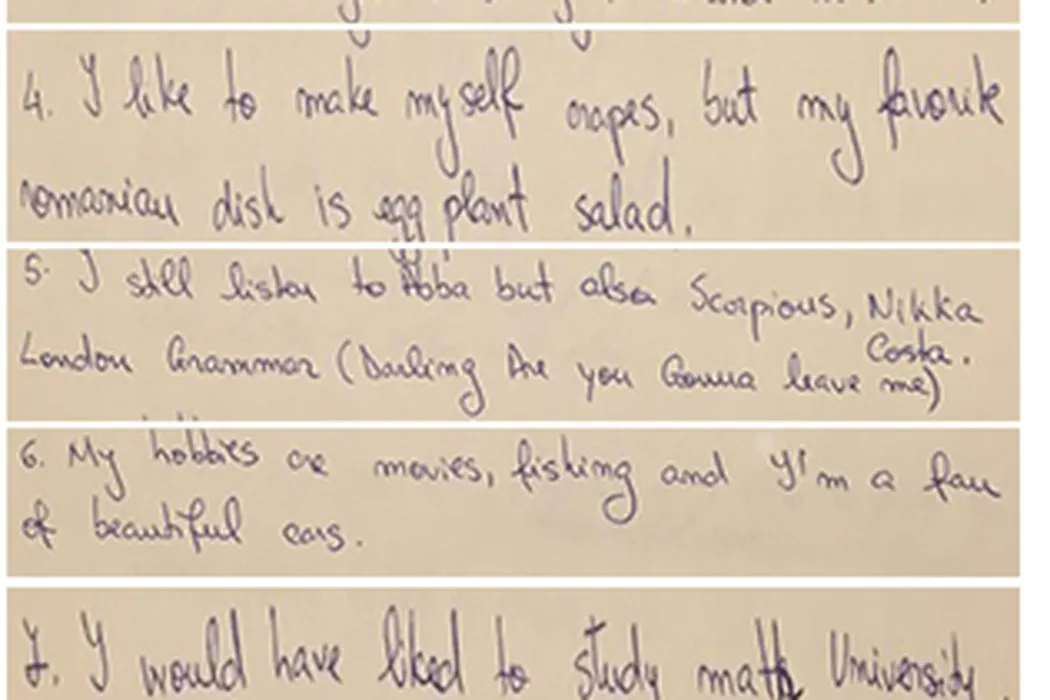 4. I like to make myself crapes, but my favorite
romanian dish is egg plant salad.
5. I still listen to Abba but also Scorpious, Nikka
Costa.
London Grammar (Darling Are you Gonna leave me)
6. My hobbies are movies, fishing and I'm a fan
of beautiful cars.
7. I would have liked to study math University.